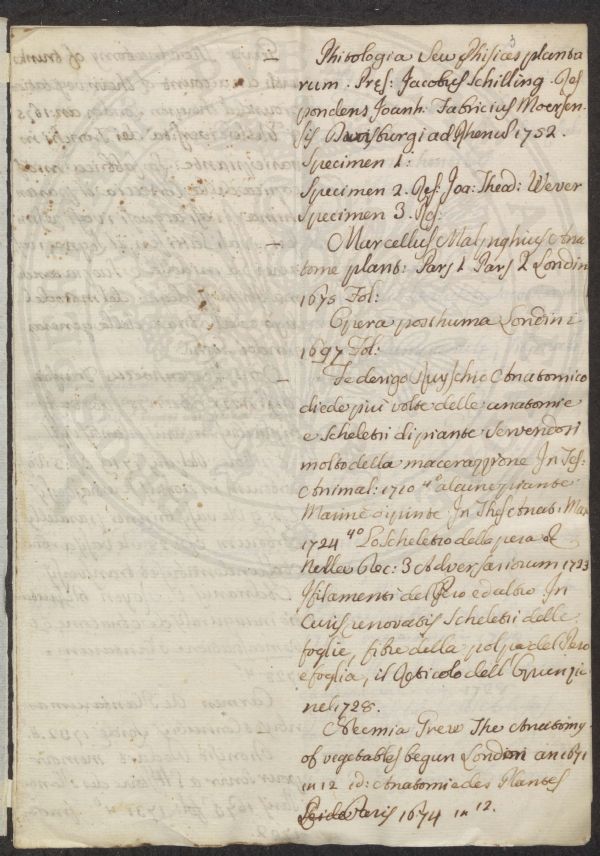 3
Phitologia Seu Phisices planta
rum. Pręs: Jacobus Schilling. Res
pondens Joanh. Fabricius Moersen-
sis Duisburgi ad Rhenū 1752.
Specimen 1:
Specimen 2. Res: Joa: Thead: Wever
Specimen 3. Res:
Marcellus Malpighius Ana
tome plant: Pars 1 Pars 2 Londin
1675 Fol:
Opera posthuma Londini
1697 Fol:
Federigo Ruyschio Anatomico
diede piu volte delle anatomie
e Scheletri di piante Servendosi
molto della macerazione In Tes:
Animal: 1710 4º alcune piante
Marine dipinte In Thes: Anat: Max
1724 4º Lo Scheletro della pera &
Nella Dec: 3 Adversariorum 1723
I filamenti del Pero ed altro In
Curis renovatis Scheletri delle
foglie, fibre della polpa del Pero
e foglia, il Reticolo dell'
nel 1728.
Neemia Grew The Anatomy
of vegetables begun London an 1671
in 12 id: Anatomie des Plantes
Paris 1674 in 12.